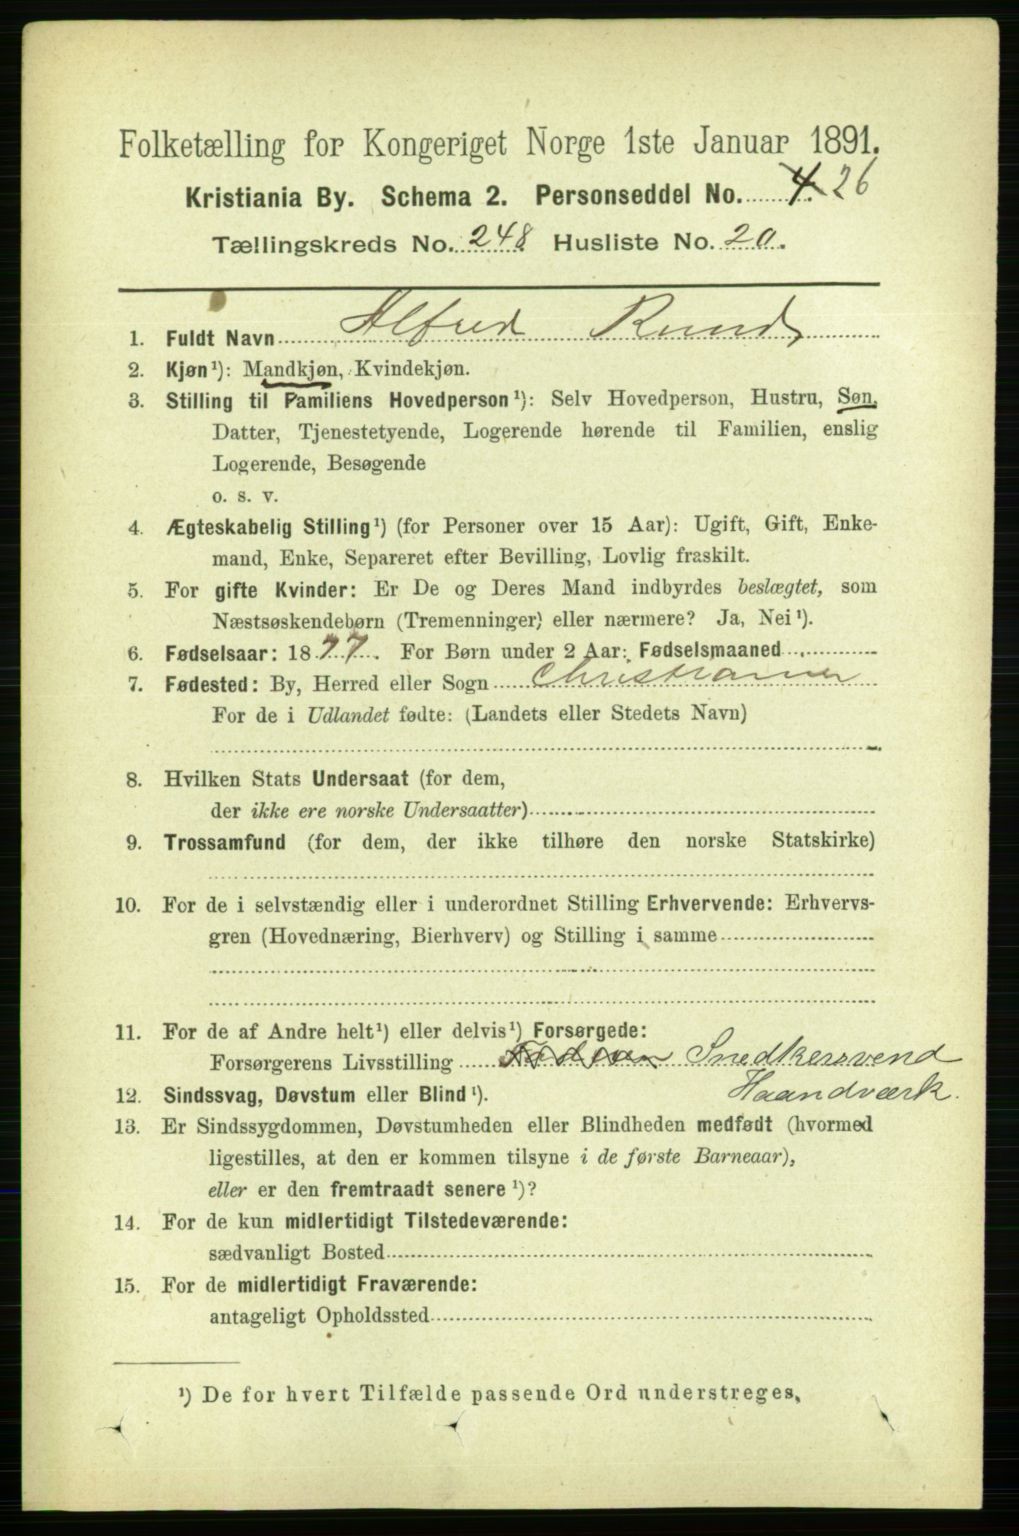 Folketælling for Kongeriget Norge 1ste Januar 1891.
Kristiania By. Schema 2. Personseddel No. 4. 26
Tællingskreds No. 248 Husliste No. 20.
1. Fuldt Navn Alfred Rund
2. Kjøn¹): Mandkjøn, Kvindekjøn.
3. Stilling til Familiens Hovedperson¹): Selv Hovedperson, Hustru, Søn,
Datter, Tjenestetyende, Logerende hørende til Familien, enslig
Logerende, Besøgende
o. s. v.
4. Ægteskabelig Stilling¹) (for Personer over 15 Aar): Ugift, Gift, Enke-
mand, Enke, Separeret efter Bevilling, Lovlig fraskilt.
5. For gifte Kvinder: Er De og Deres Mand indbyrdes beslægtet, som
Næstsøskendebørn (Tremenninger) eller nærmere? Ja, Nei¹).
6. Fødselsaar: 1877. For Børn under 2 Aar: Fødselsmaaned
7. Fødested: By, Herred eller Sogn Christiania
For de i Udlandet fødte: (Landets eller Stedets Navn)
8. Hvilken Stats Undersaat (for dem,
der ikke ere norske Undersaatter)
9. Trossamfund (for dem, der ikke tilhøre den norske Statskirke)
10. For de i selvstændig eller i underordnet Stilling Erhvervende: Erhvervs-
gren (Hovednæring, Bierhverv) og Stilling i samme
11. For de af Andre helt¹) eller delvis¹) Forsørgede:
Forsørgerens Livsstilling Snedkersvend
Haandværk.
12. Sindssvag, Døvstum eller Blind¹).
13. Er Sindssygdommen, Døvstumheden eller Blindheden medfødt (hvormed
ligestilles, at den er kommen tilsyne i de første Barneaar),
eller er den fremtraadt senere¹)?
14. For de kun midlertidigt Tilstedeværende:
sædvanligt Bosted
15. For de midlertidigt Fraværende:
antageligt Opholdssted
¹) De for hvert Tilfælde passende Ord understreges.